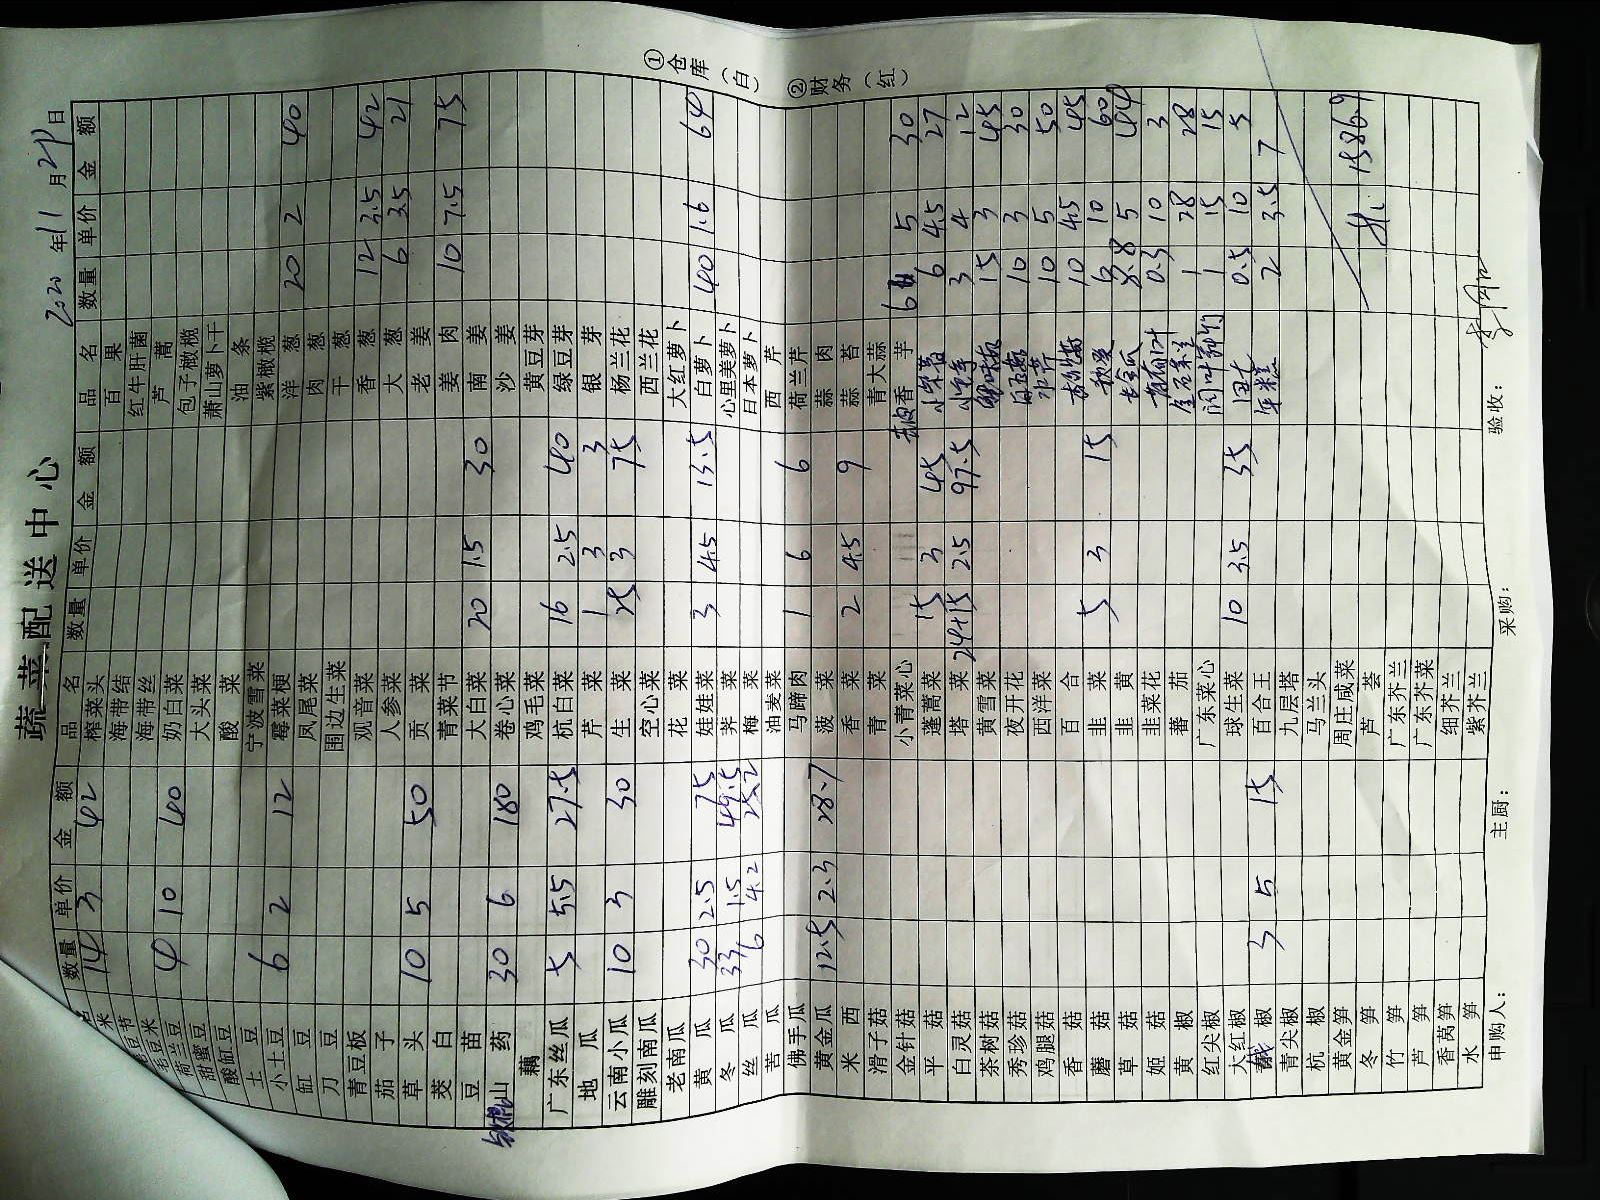 蔬菜配送中心
2020年11月29日
名 数量 单价 金额 品名 数量 单价 金额 品名 数量 单价 金额
米 14 3 42 榨菜头 百果
豆节 海带结 红牛肝菌
毛豆米 海带丝 芦蒿
荷兰豆 4 10 40 奶白菜 包子橄榄
甜蜜豆 大头菜 萧山萝卜干
酸缸豆 酸菜 油条
土豆 宁波雪菜 紫橄榄
小土豆 6 2 12 霉菜梗 洋葱 20 2 40
缸豆 凤尾菜 肉葱
刀豆 围边生菜 干葱
青豆板 观音菜 香葱 12 3.5 42
茄子 人参菜 大葱 6 3.5 21
草头 10 5 50 贡菜 老姜
茭白 青菜节 姜肉 10 7.5 75
豆苗 大白菜 20 1.5 30 南姜
山药 30 6 180 卷心菜 沙姜
藕 鸡毛菜 黄豆芽
广东丝瓜 5 5.5 27.5 杭白菜 16 2.5 40 绿豆芽
地瓜 芹菜 1 3 3 银芽
云南小瓜 10 3 30 生菜 25 3 75 杨兰花
雕刻南瓜 空心菜 西兰花
老南瓜 花菜 大红萝卜
黄瓜 30 2.5 75 娃娃菜 3 4.5 13.5 白萝卜 40 1.6 64
冬瓜 33 1.5 49.5 荠菜 心里美萝卜
丝瓜 6 4.2 25.2 梅菜 日本萝卜
苦瓜 油麦菜 西芹
佛手瓜 马蹄肉 1 6 6 荷兰芹
黄金瓜 12.5 2.3 28.7 菠菜 蒜肉
米西 香菜 2 4.5 9 蒜苔
滑子菇 青菜 青大蒜
金针菇 小青菜心 香芋 6 5 30
平菇 蓬蒿菜 15 3 45 6 4.5 27
白灵菇 塔菜 24+15 2.5 97.5 3 4 12
茶树菇 黄雪菜 15 3 45
秀珍菇 夜开花 10 3 30
鸡腿菇 西洋菜 10 5 50
香菇 百合 10 4.5 45
蘑菇 韭菜 5 3 15 6 10 60
草菇 韭黄 8.8 5 44
姬菇 韭菜花 0.3 10 3
黄椒 蕃茄 1 28 28
红尖椒 广东菜心 1 15 15
大红椒 球生菜 10 3.5 35 0.5 10 5
椒 3 5 15 百合王 年糕 2 3.5 7
青尖椒 九层塔
杭椒 马兰头
黄金笋 周庄咸菜 1586.9
冬笋 芦荟
竹笋 广东芥兰
芦笋 广东芥菜
香莴笋 细芥兰
水笋 紫芥兰
申购人： 主厨： 采购： 验收：
①仓库（白）
②财务（红）